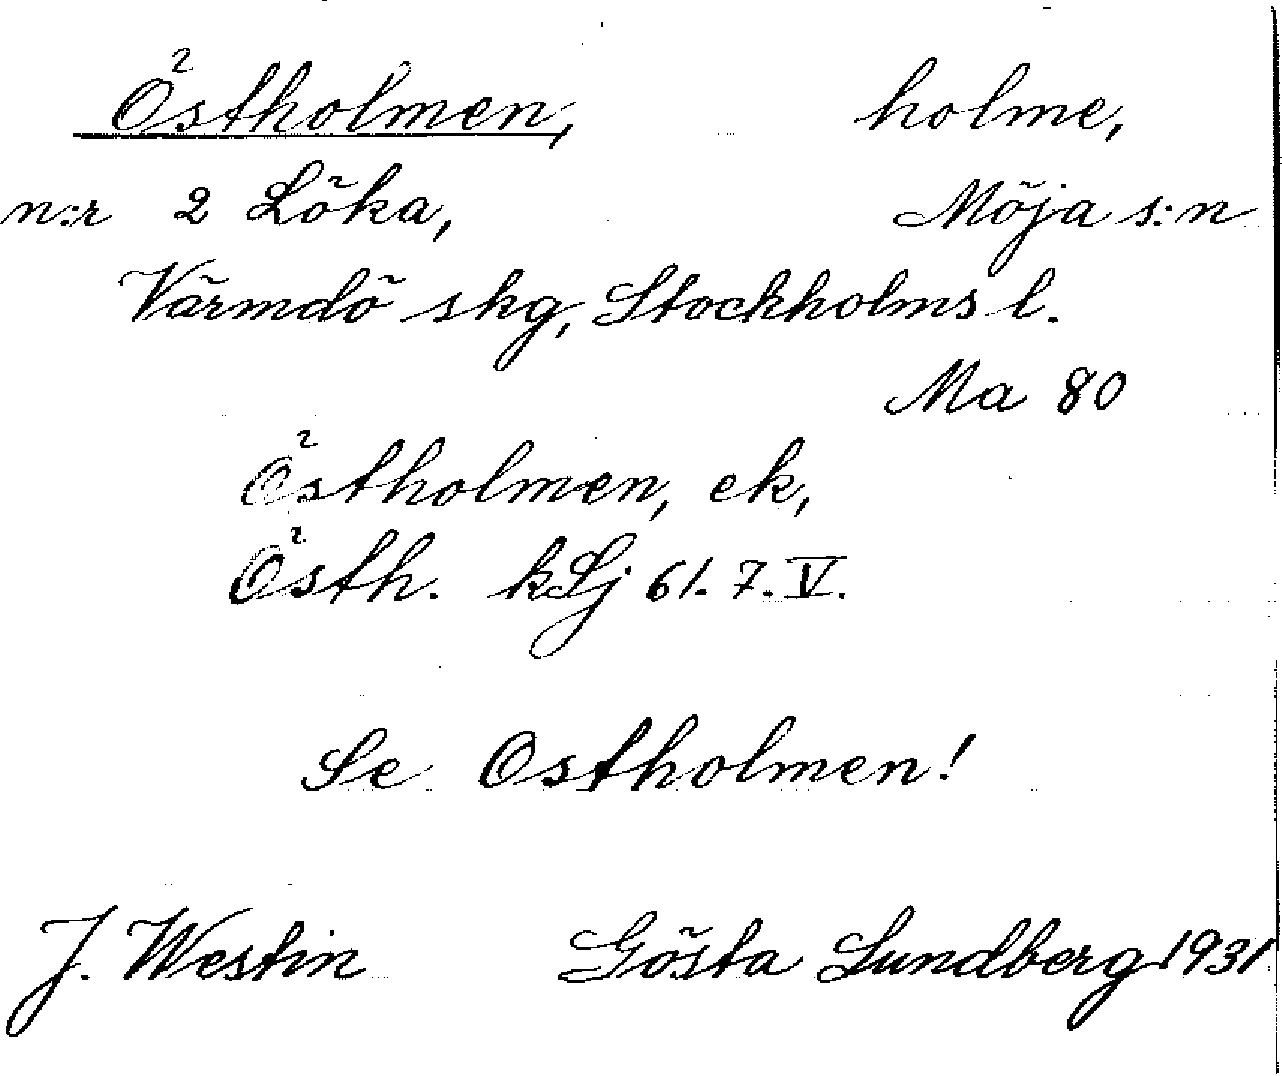 Östholmen, holme,
n:r 2 Löka, Möja s:n
Värmdö skg, Stockholms l.
Ma 80
Östholmen, ek,
Östh. kLj 61. 7. V.
Se Ostholmen!
J. Westin Gösta Lundberg 1931